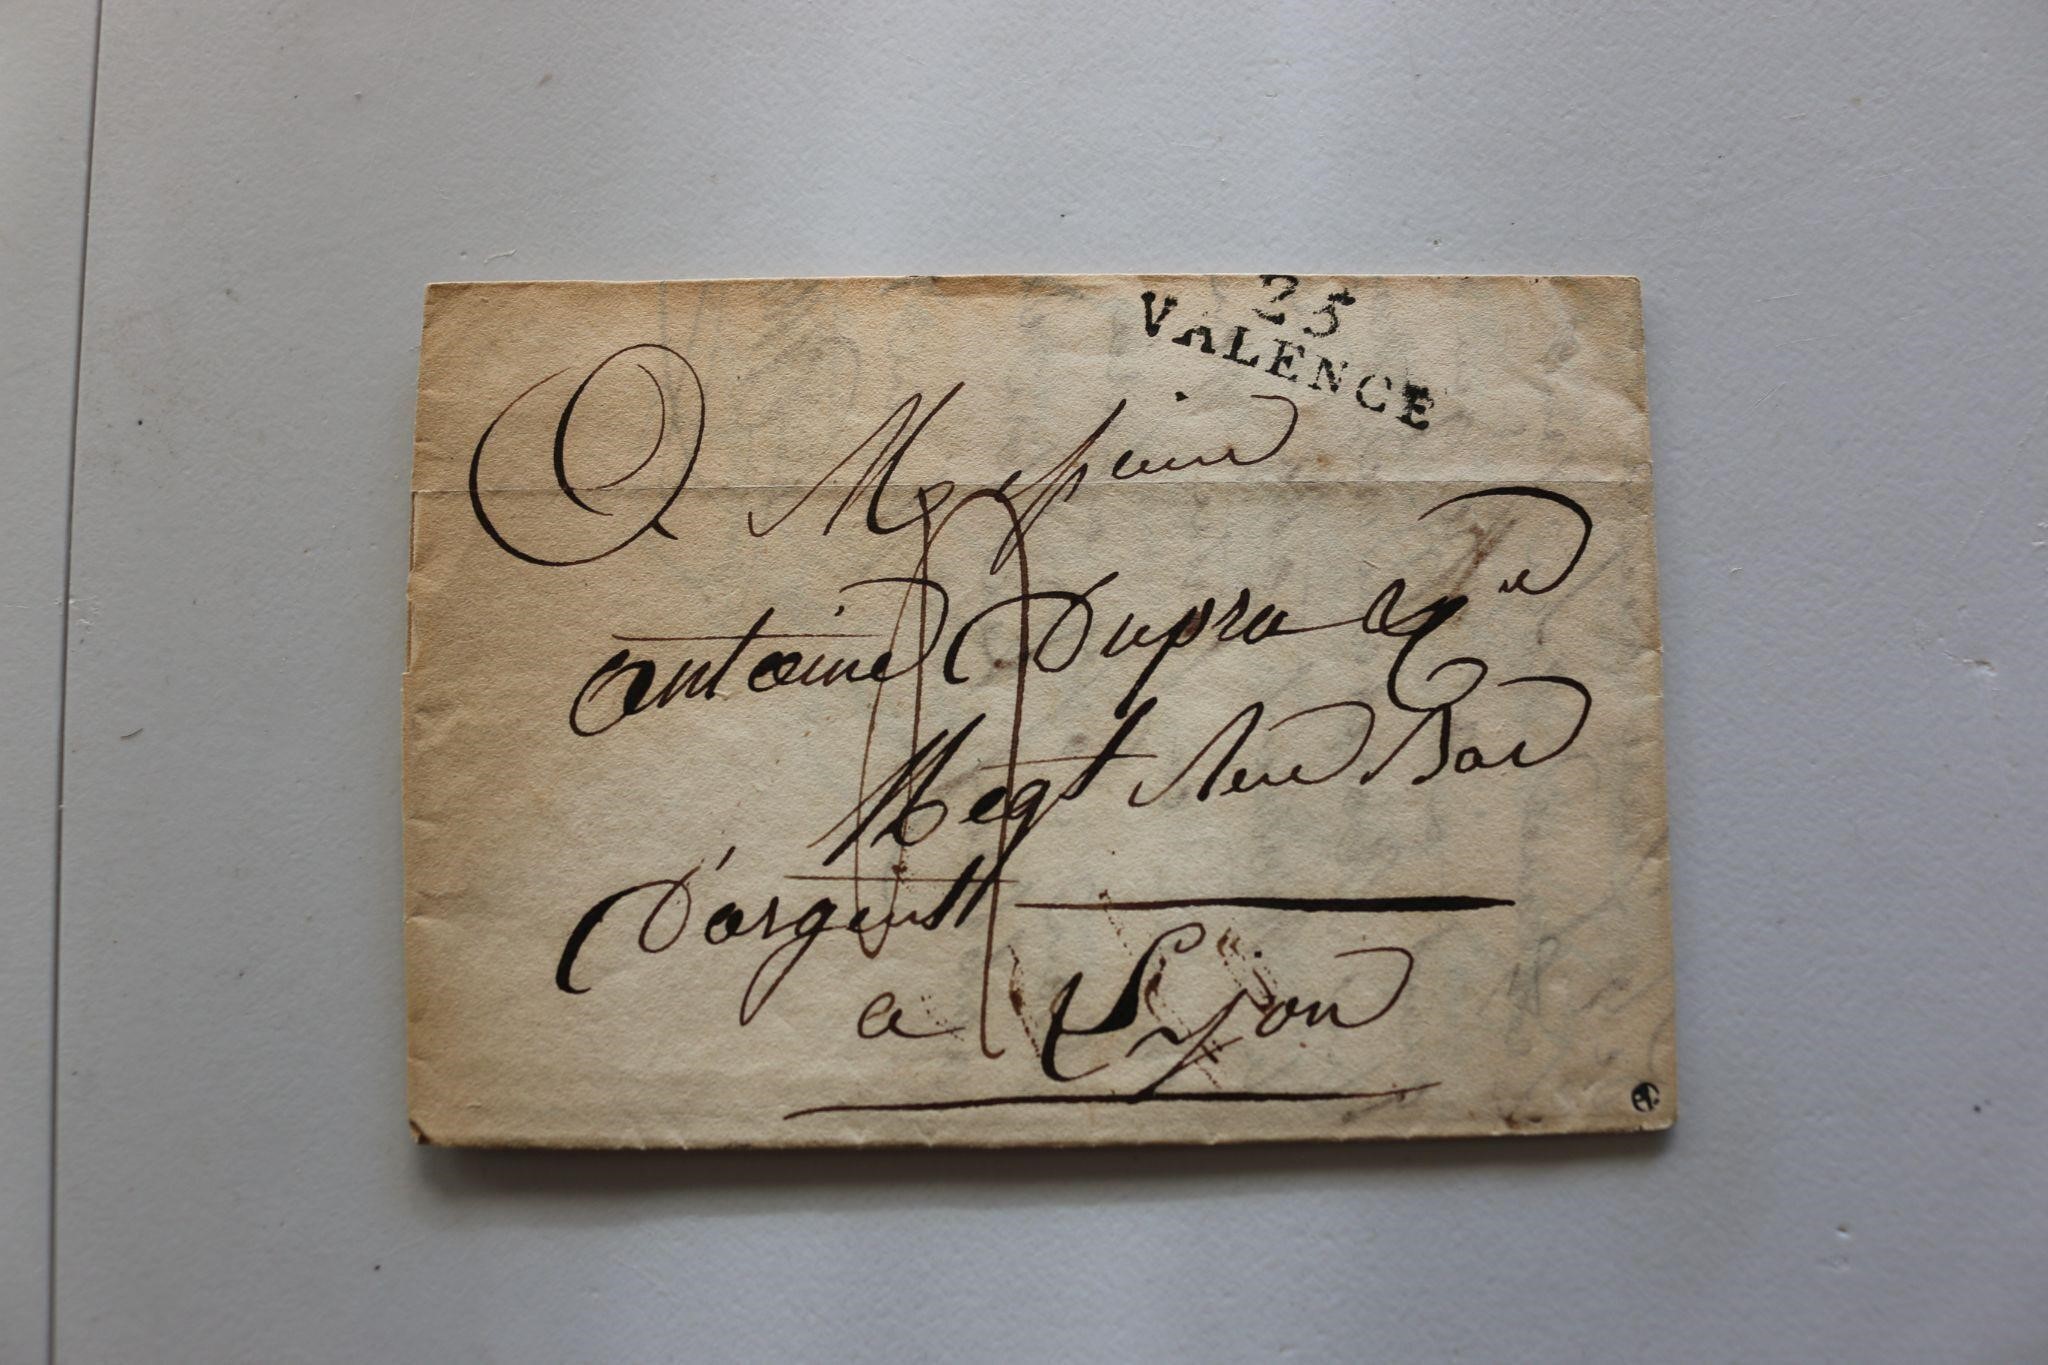 25
VALENCE
A Messieurs
antoine Dupra & Cie
Negt Rue Bas
D'argent
a Lyon